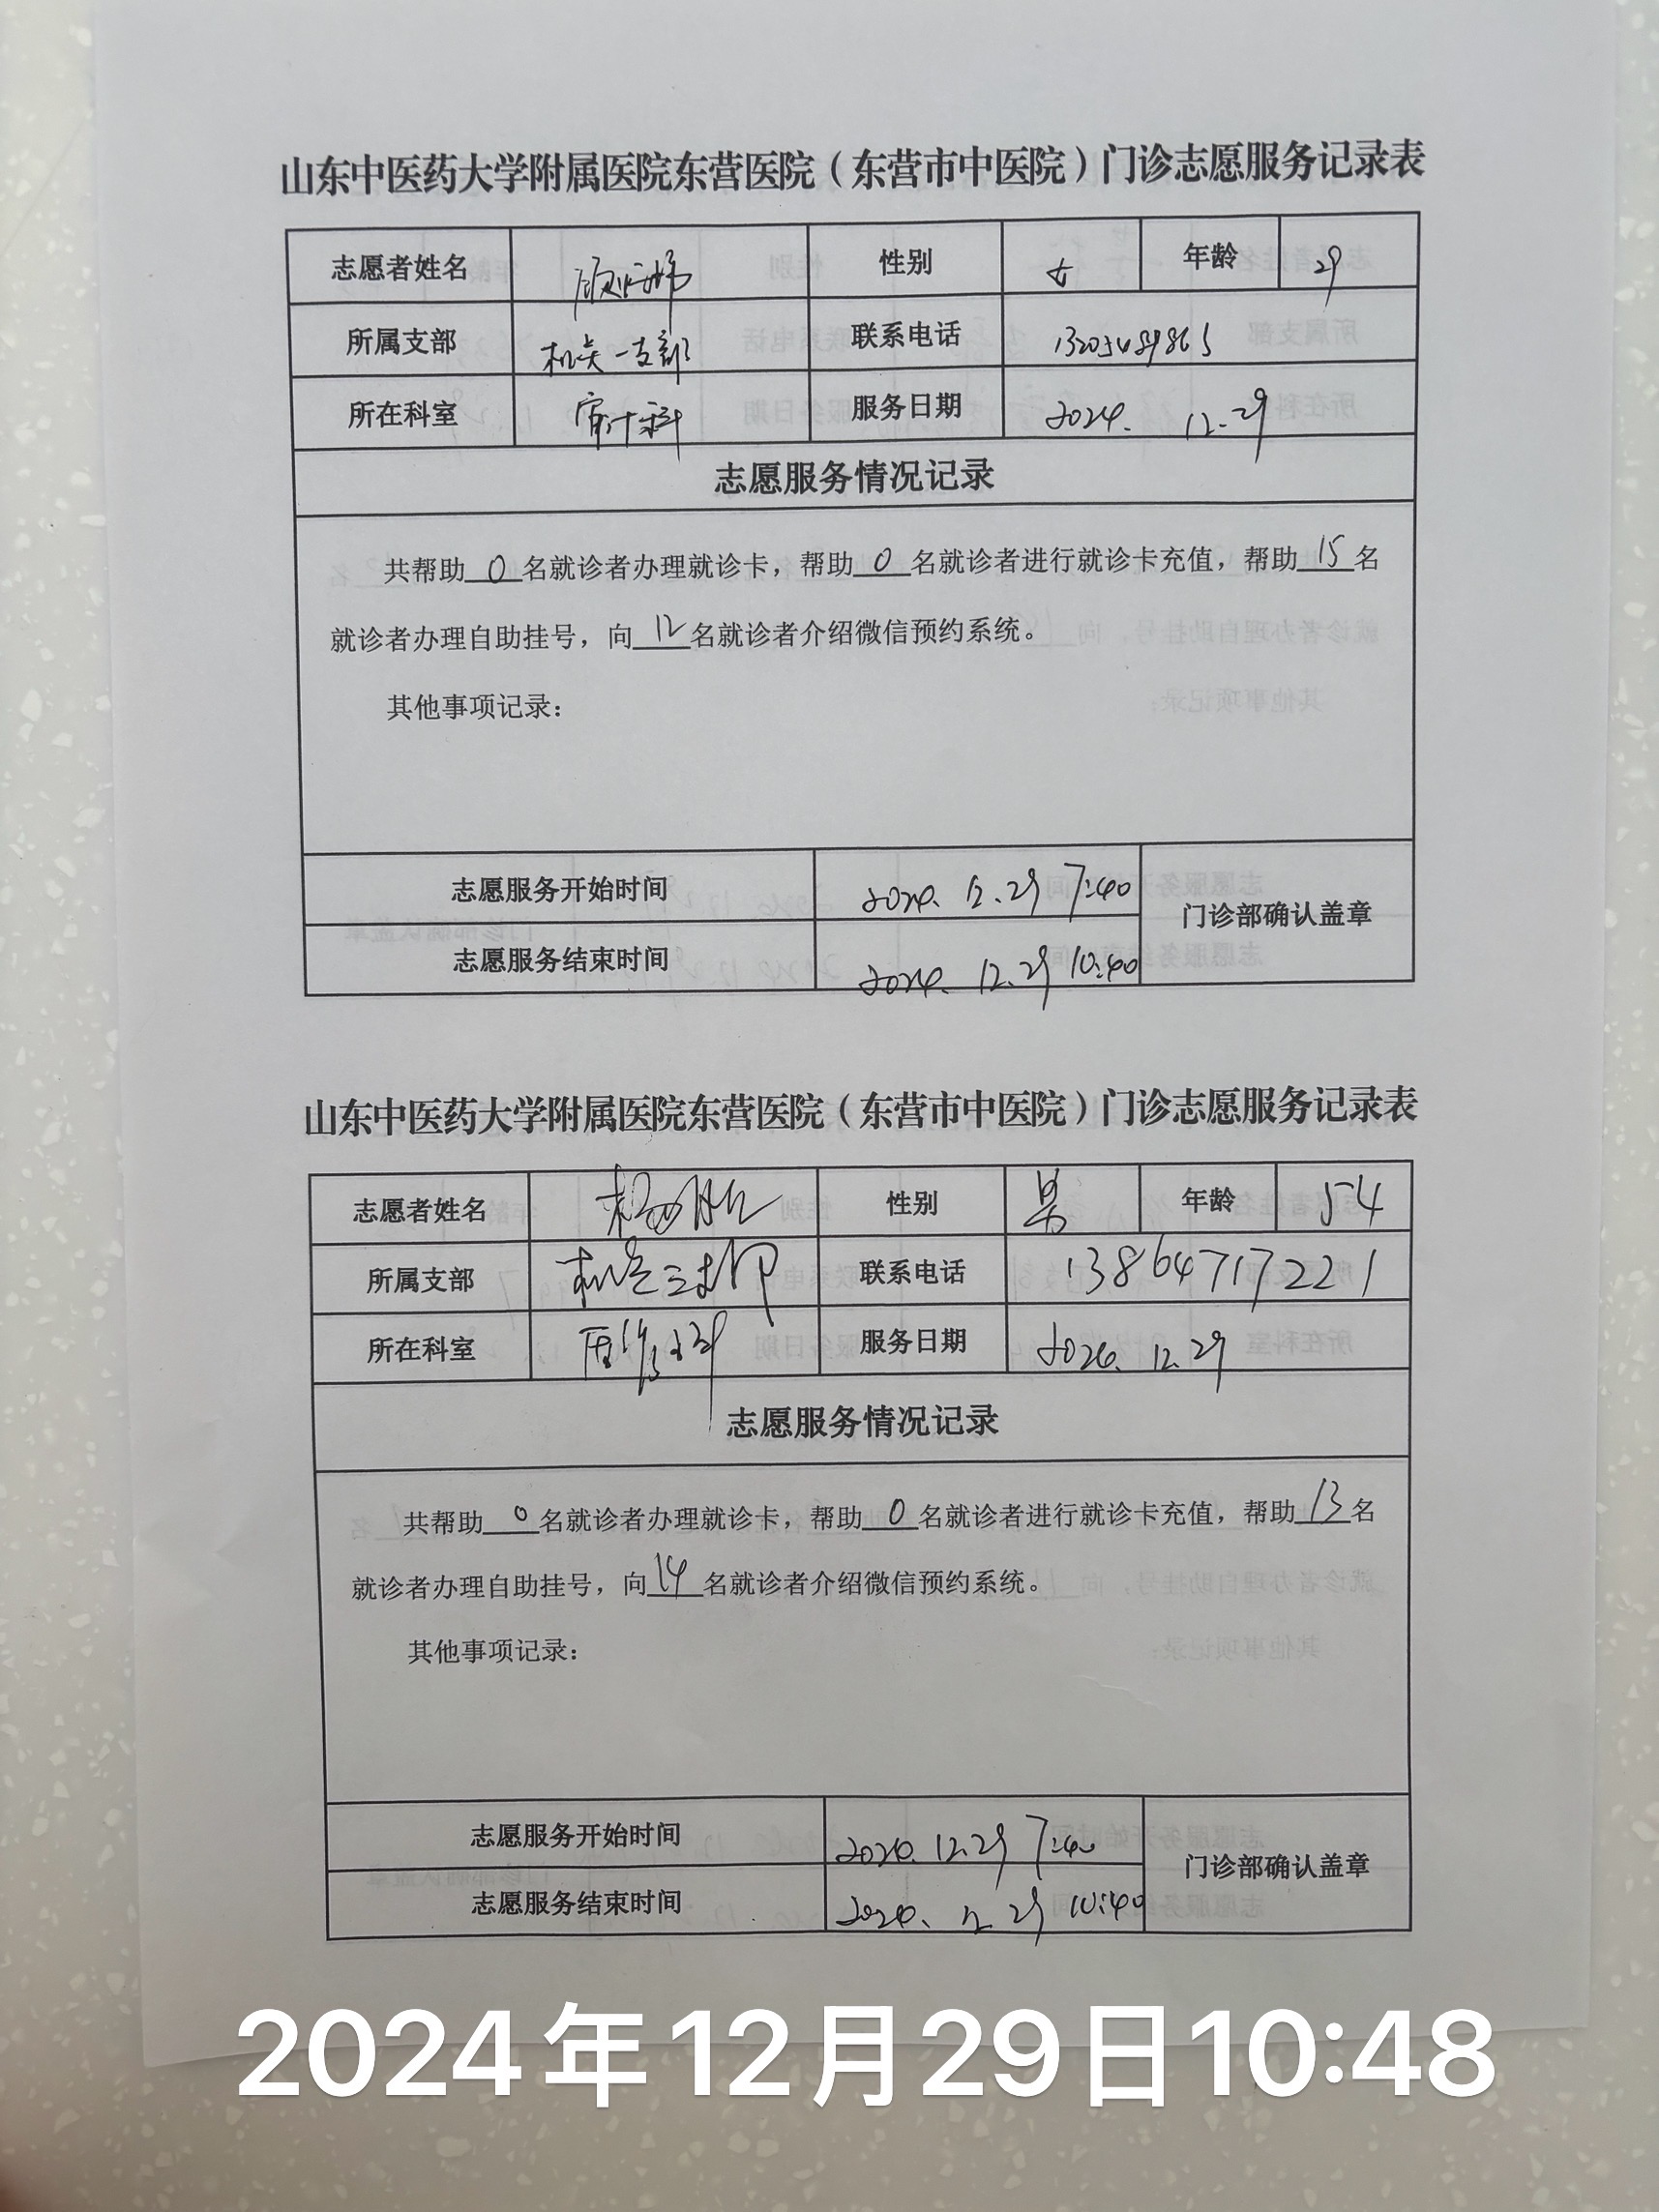 山东中医药大学附属医院东营医院（东营市中医院）门诊志愿服务记录表
志愿者姓名 性别 女 年龄 29
所属支部 机关一支部 联系电话 13205489865
所在科室 审计科 服务日期 2024. 12.29
志愿服务情况记录
共帮助 0 名就诊者办理就诊卡，帮助 0 名就诊者进行就诊卡充值，帮助 15 名
就诊者办理自助挂号，向 12 名就诊者介绍微信预约系统。
其他事项记录：
志愿服务开始时间 2024. 12.29 7:40
门诊部确认盖章
志愿服务结束时间 2024. 12.29 10:40
山东中医药大学附属医院东营医院（东营市中医院）门诊志愿服务记录表
志愿者姓名 性别 男 年龄 54
所属支部 机关三支部 联系电话 13864717221
所在科室 服务日期 2024. 12.29
志愿服务情况记录
共帮助 0 名就诊者办理就诊卡，帮助 0 名就诊者进行就诊卡充值，帮助 13 名
就诊者办理自助挂号，向 14 名就诊者介绍微信预约系统。
其他事项记录：
志愿服务开始时间 2024. 12.29 7:40
门诊部确认盖章
志愿服务结束时间 2024. 12.29 10:40
2024年12月29日10:48